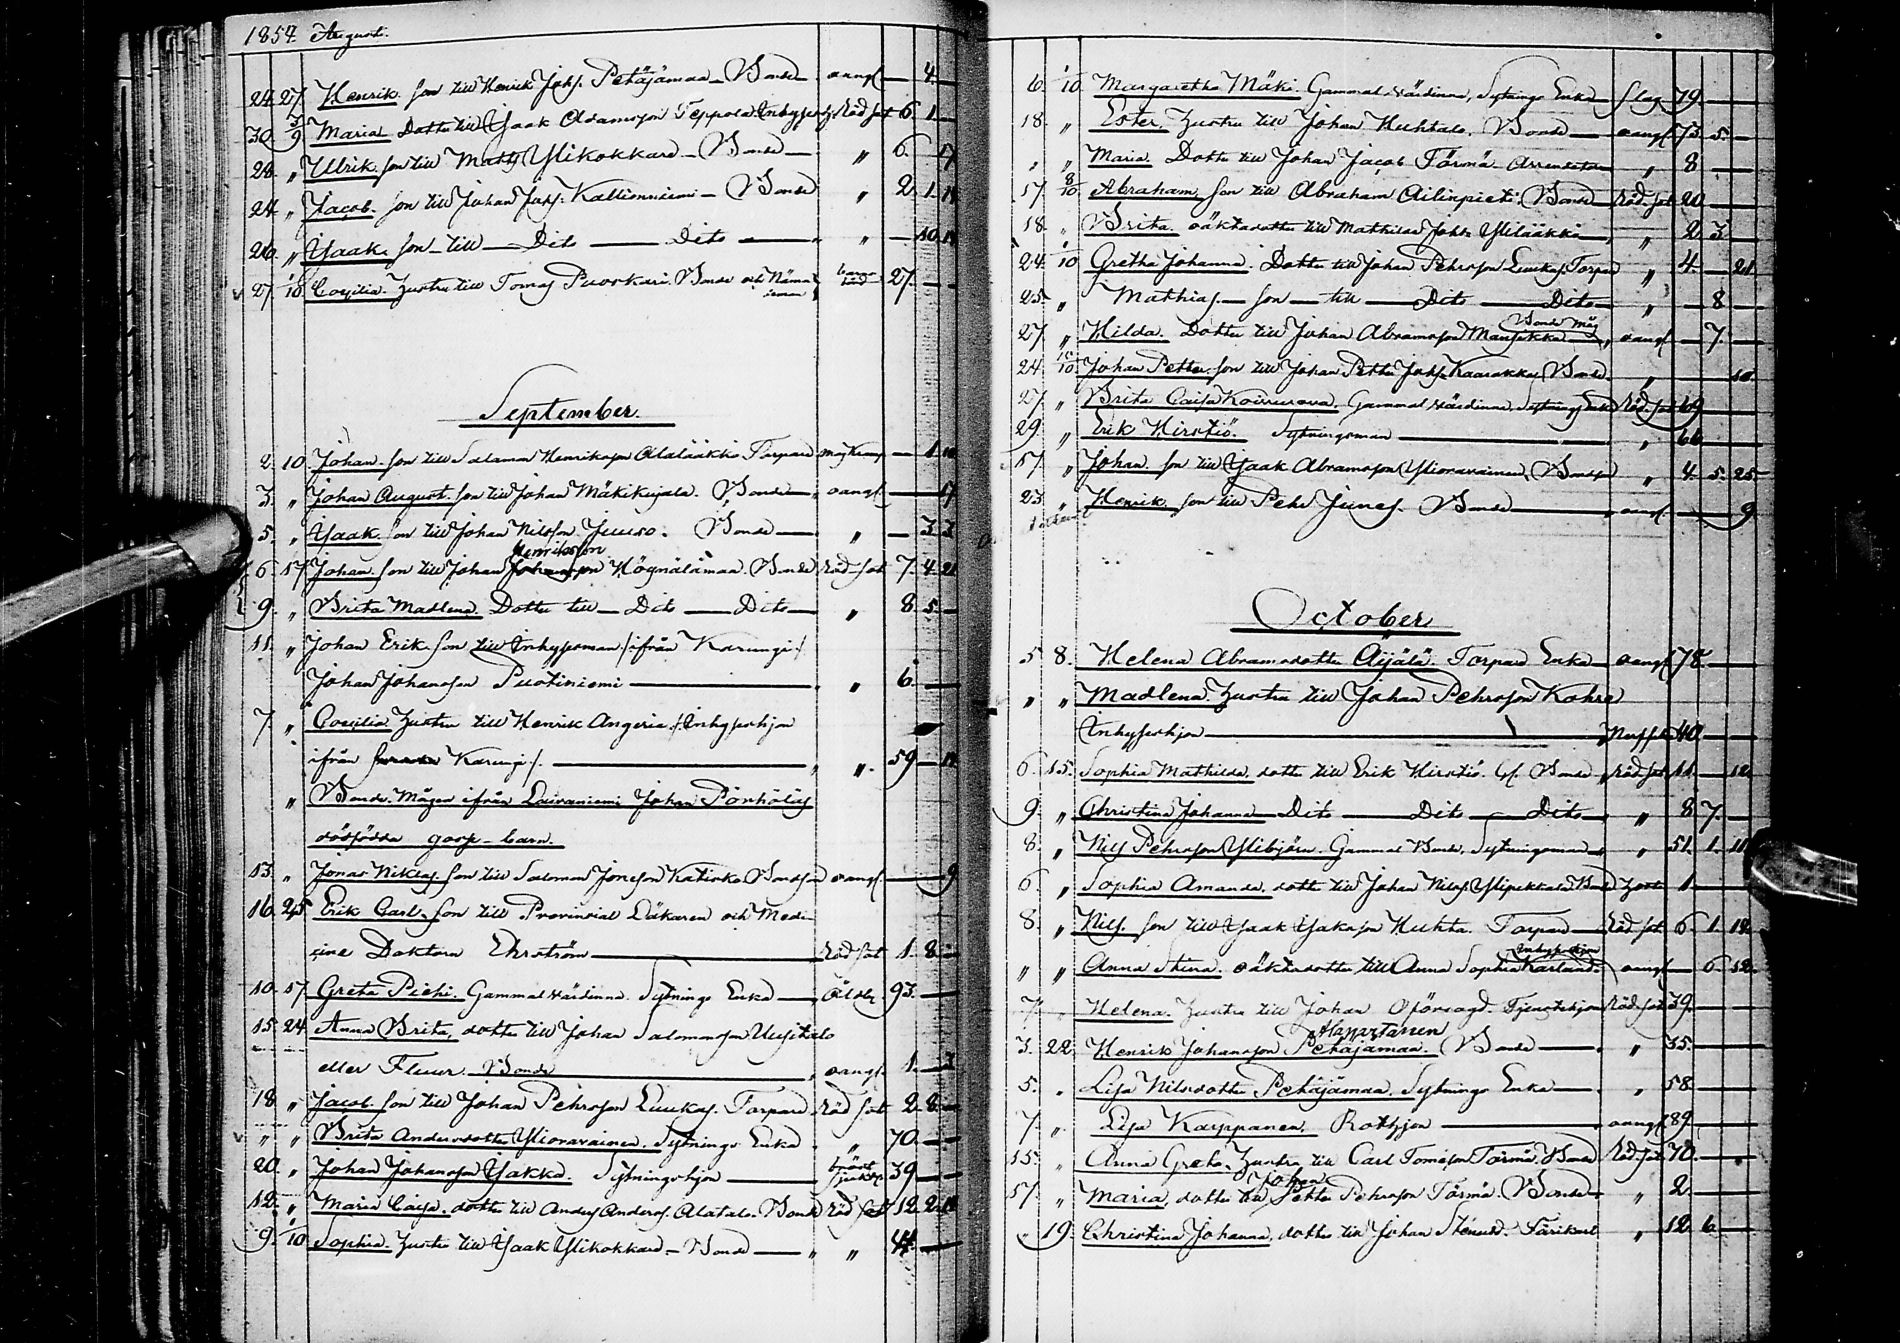 1854. August.
24. 27. Henrik. son till Henrik Johs. Petäjämaa - Bonde - oangf - 4 -
30 3/9 Maria Dotter till Isaak Adamsson Teppola Inhyseshj. Röd sot 6. 1 -
28. „ Ulrik. son till Matts Ylikokkare - Bonde - „ 6. - 17
24 „ Jacob. son till Johan Johs. Kallionniemi - Bonde „ 2. 1. 14
26. „ Isaak. son - till - Dito - Dito - „ - 10.
27. 1/10 Cecilia. Hustru till Tomas Puoskari. Bonde och Nämn- 27. - -
deman
September.
2. 10. Johan. son till Salamon Henriksson Alalääkkö Torpare - 1.
3. „ Johan August. son till Johan Mäkikujala. Bonde - oangf. - 17
5. „ Isaak son till Johan Nilsson Juuso. Bonde - „ - 3. 3
Henriksson
6. 17 Johan. son till Johan Johansson Högnälämaa. Bonde Röd sot 7. 4. 21
9. „ Brita Madlena. Dotter till - Dito - Dito - „ 8. 5. -
11. „ Johan Erik. son till Inhysesman /ifrån Karungi/
Johan Johansson Puotiniemi - „ 6. -
7. „ Cecilia Hustru till Henrik Angeria /Inhyseshjon
ifrån Karungi/. - „ 59 -
„ Bonde Mågen ifrån Lauraniemi Johan Pörhölä
dödfödda goss-barn.
13. „ Jonas Niklas. son till Salomon Jonsson Katisko Bondson oangf. - 9
16. 25 Erik Carl. son till Provincial Läkaren och Medi-
cine Doktorn Ehrström - Röd sot 1. 8. -
10. 17 Greta Pichi. Gammal värdinna. Sytnings Enka - Ålder 93. -
15. 24. Anna Brita, dotter till Johan Salomonsson Uusitalo
eller Fluur. Bonde - oangf. 1. - 3
18 „ Jacob. son till Johan Pehrsson Luukas. Torpare. Röd sot 2. 8. -
„ „ Brita Andersdotter Ylioravainen. Sytnings Enka „ 70. - -
20. „ Johan Johansson Jakko. Sytningshjon - bröst sjukd. 39 - -
12. „ Maria Caisa. dotter till Anders Anders. Alatalo. Bonde Röd sot 12. 2.
9. 1/10 Sophia. Hustru till Isaak Ylikokkare - Bonde - „ 44. -
6. 1/10 Margaretha Mäki. Gammal värdinna, Sytnings Enka Slag 79. -
18. „ Ester. Hustru till Johan Huhtalo. Bonde - oangf 73. 5. -
„ „ Maria. Dotter till Johan Jacob Törmä Arrendator „ 8 -
17 8/10 Abraham. son till Abraham Ailinpieti. Bonde Röd. sot 20 -
18. „ Brita. oäktadotter till Mathilda Johs. Ylilääkkö „ 2. 3. -
24. 1/10 Gretha Johanna. Dotter till Johan Pehrsson Luukas Torpare „ 4. - 21
25. „ Mathias. - son - till - Dito - Dito - „ - 8 -
Bonde Måg
27. „ Hilda. Dotter till Johan Abramsson - oangf - 7. -
24 10/10 Johan Petter. son till Johan Petter Johs. Kaarakka Bonde „ - 10.
27. „ Brita Caisa Koivurova. Gammal värdinna. Sytnings Enka Röd. sot 69
29. „ Erik Hirstiö. Sytningsman - „ 66
17. „ Johan. son till Isaak Abramsson Ylioravainen, Bonde „ 4. 5. 25
23. „ Henrik. son till Pehr Junes. Bonde - oangf - 9.
October
5 8. Helena Abramsdotter Äijälä. Torpare Enka - oangf 78. -
„ „ Madlena Hustru till Johan Pehrsson Kohre
Inhyseshjon - 40 -
6. 15. Sophia Mathilda, dotter till Erik Hirstiö. Bonde Röd. sot 11. - 12
9. „ Christina Johanna - Dito - Dito - Dito - „ 8 7. -
8. „ Nils Pehrsson Ylibjörn. Gammal Bonde. Sytningsman „ 51. 1. 11
6. „ Sophia Amanda. dotter till Johan Nils. Ylipekkala Bonde 1. -
8. „ Nils. son till Isaak Isaksson Huhta. Torpare - Röd sot 6. 1. 14.
Inhyseshjon
„ „ Anna Stina. oäktadotter till Anna Sophia Karlund. oangf - 6. 12.
7. „ Helena. Hustru till Johan Oförsagd. Tjenstehjon Röd. sot 39 -
Alapartanen
3. 22. Henrik Johansson Petäjämaa. Bonde - „ 35. -
5. „ Lisa Nilsdotter Petäjämaa. Sytnings Enka - „ 58 -
7. „ Lisa Karppanen. Rothjon - oangf 89. -
15. „ Anna Greta. Hustru till Carl Tomasson Törmä. Bonde Röd. sot 70. -
Johan
17. „ Maria, dotter till Petter Pehrsson Törmä. Bonde - „ 2. -
„ 19. Christina Johanna, dotter till Johan Stenud. Färikarl „ 12. 6. -